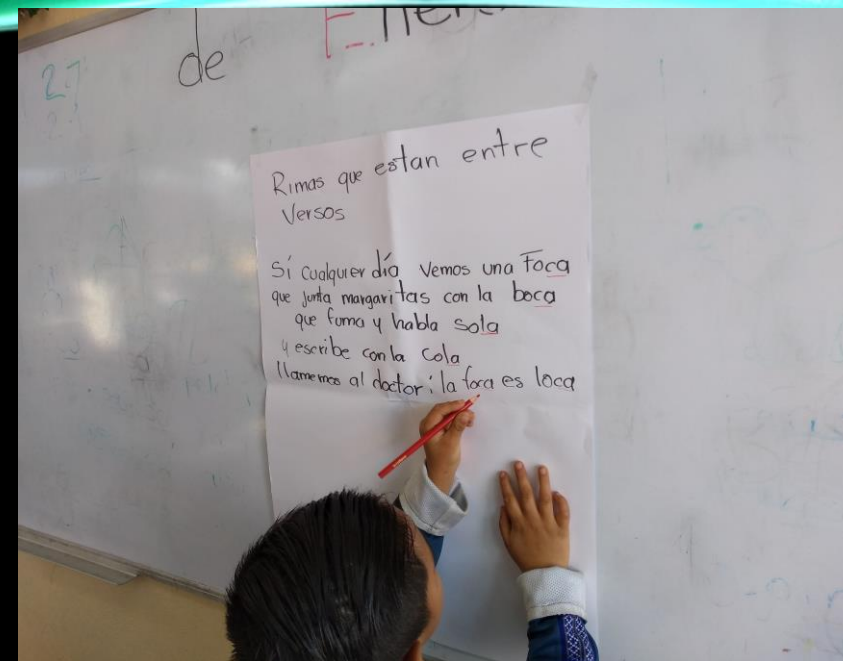 27
de
Rimas que estan entre
Versos
Sí cualquier día vemos una Foca
que junta margaritas con la boca
que fuma y habla sola
y escribe con la cola
llamemos al doctor: la foca es loca